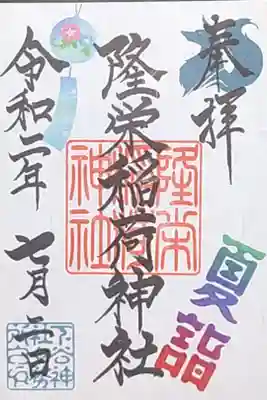 奉拝
隆栄稲荷神社
夏詣
令和二年 七月二日
隆栄稲荷神社